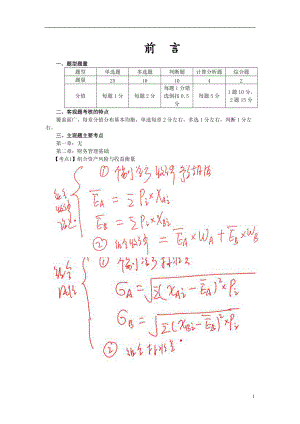 前 言
一、题型题量
题型 单选题 多选题 判断题 计算分析题 综合题
题量 25 10 10 4 2
分值 每题1分 每题2分 每题1分错误倒扣0.5分 每题5分 1题10分，2题15分
二、客观题考核的特点
覆盖面广，每章分值分布基本均衡，单选每章2分左右，多选1分左右，判断1分左右。
三、主观题主要考点
第一章：无
第二章：财务管理基础
【考点1】组合资产风险与收益衡量
① 个别
E̅A = ΣPi×XAi
E̅B = ΣPi×XBi
② = E̅A×WA + E̅B×WB
① 个别
σA = √Σ(XAi−E̅A)²×Pi
σB = √Σ(XBi−E̅B)²×Pi
② 组合标准差
1